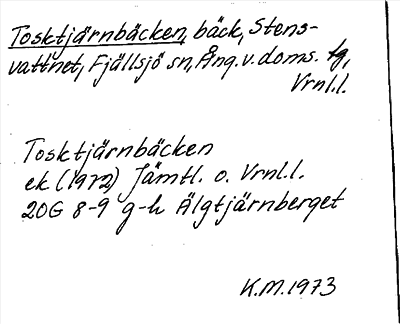 Tosktjärnbäcken, bäck, Stens-
vattnet, Fjällsjö sn, Ång. v. doms. tg,
Vrnl.l.
Tosktjärnbäcken
ek (1972) Jämtl. o. Vrnl.l.
20G 8-9 g-h Älgtjärnberget
K.M. 1973